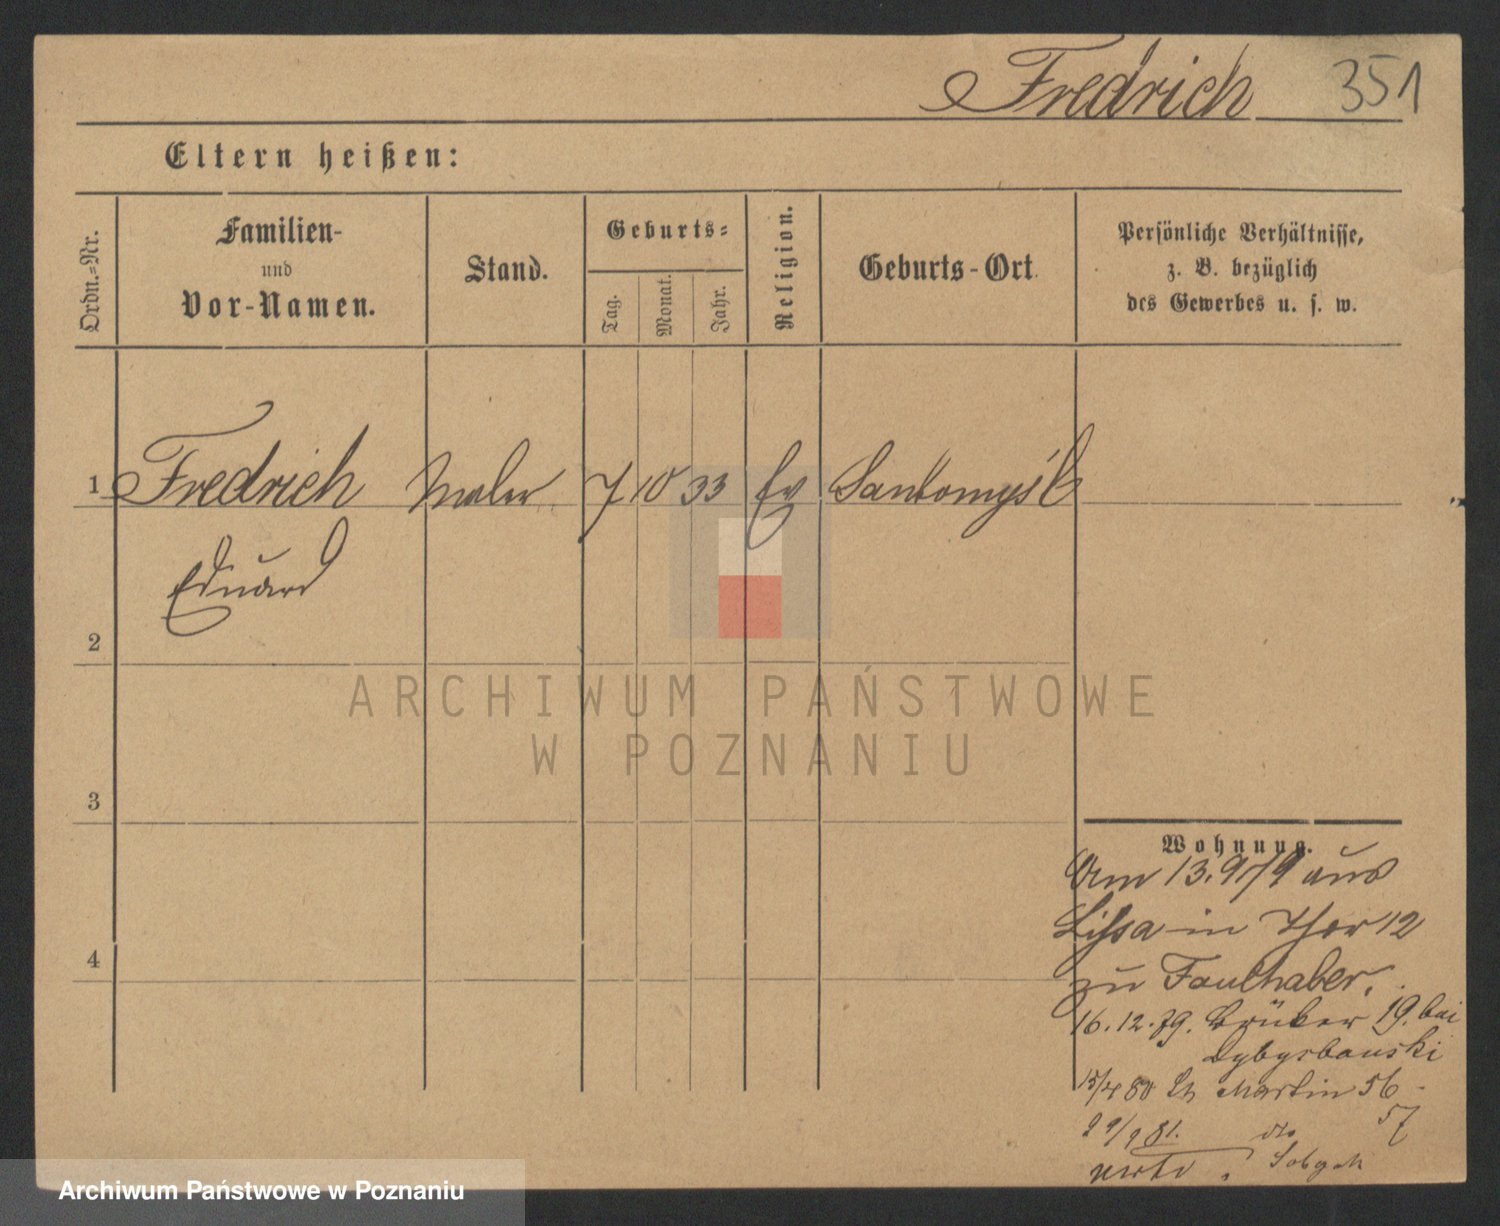 Fredrich 351
Eltern heißen:
Ordn.-Nr.
Familien-
und
Vor-Namen.
Stand.
Geburts-
Tag.
Monat.
Jahr.
Religion.
Geburts-Ort
Persönliche Verhältnisse,
z. B. bezüglich
des Gewerbes u. s. w.
1 Fredrich Maler 7 10 33 Ev Santomyśl
Eduard
2
3
4
ARCHIWUM PAŃSTWOWE
W POZNANIU
Wohnung.
Am 13.9/79 aus
Lissa in Thor 12
zu Faulhaber.
16.12.79. 19. bei
15/4 80 St Martin 56
57
81. do
Archiwum Państwowe w Poznaniu